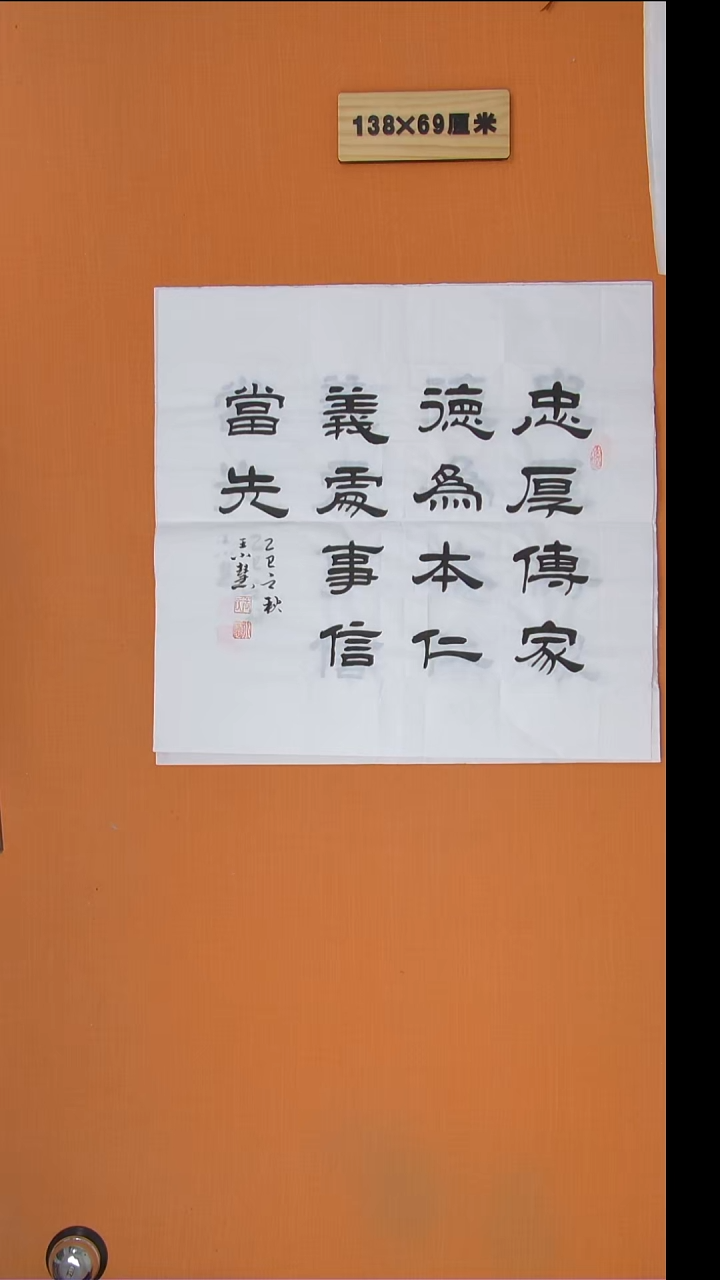 138×69厘米
忠厚傳家
德為本仁
義處事信
當先
乙巳立秋
王小慧